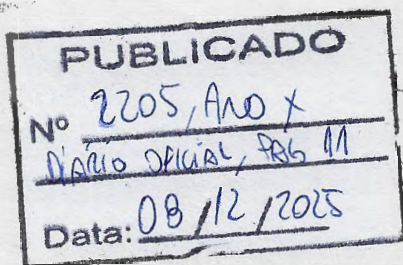 PUBLICADO
Nº 2205, ANO X
DIÁRIO OFICIAL, PAG 11
Data: 08/12/2025